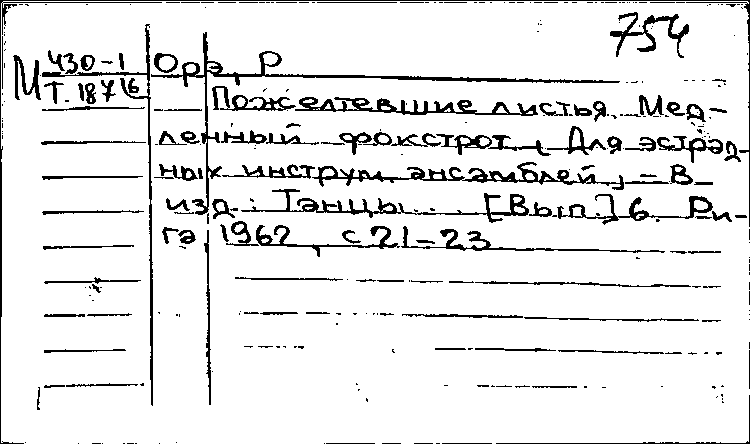 754
М 430-1 Орэ, Р
Т. 187/6 Пожелтевшие листья. Мед-
ленный фокстрот, Для эстрад-
ных инструм. ансамблей, - В
изд.: Танцы... [Вып.] 6. Ри-
га, 1962, с 21-23